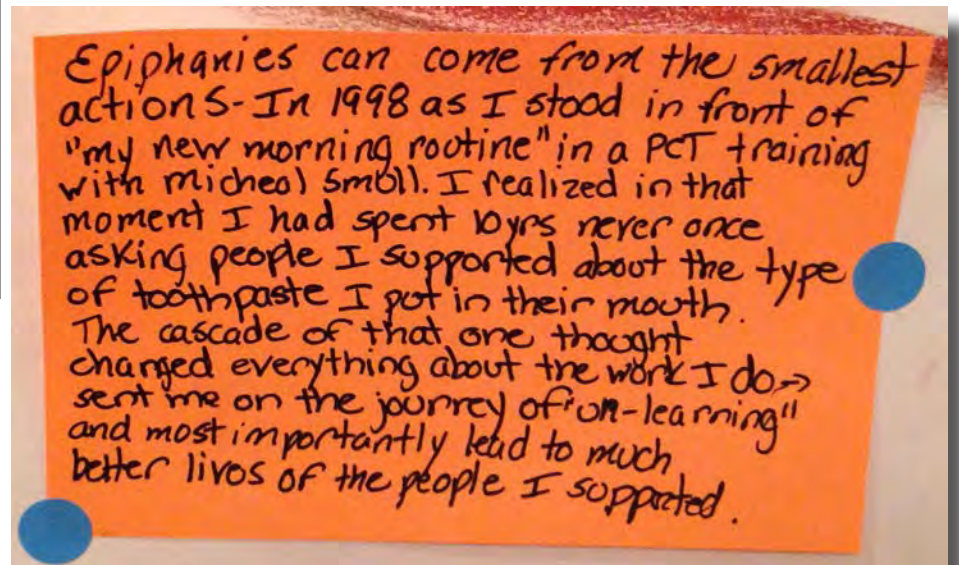 Epiphanies can come from the smallest
actions - In 1998 as I stood in front of
"my new morning routine" in a PCT training
with Micheal Smull. I realized in that
moment I had spent 10yrs never once
asking people I supported about the type
of toothpaste I put in their mouth.
The cascade of that one thought
changed everything about the work I do →
sent me on the journey of "un-learning"
and most importantly lead to much
better lives of the people I supported.